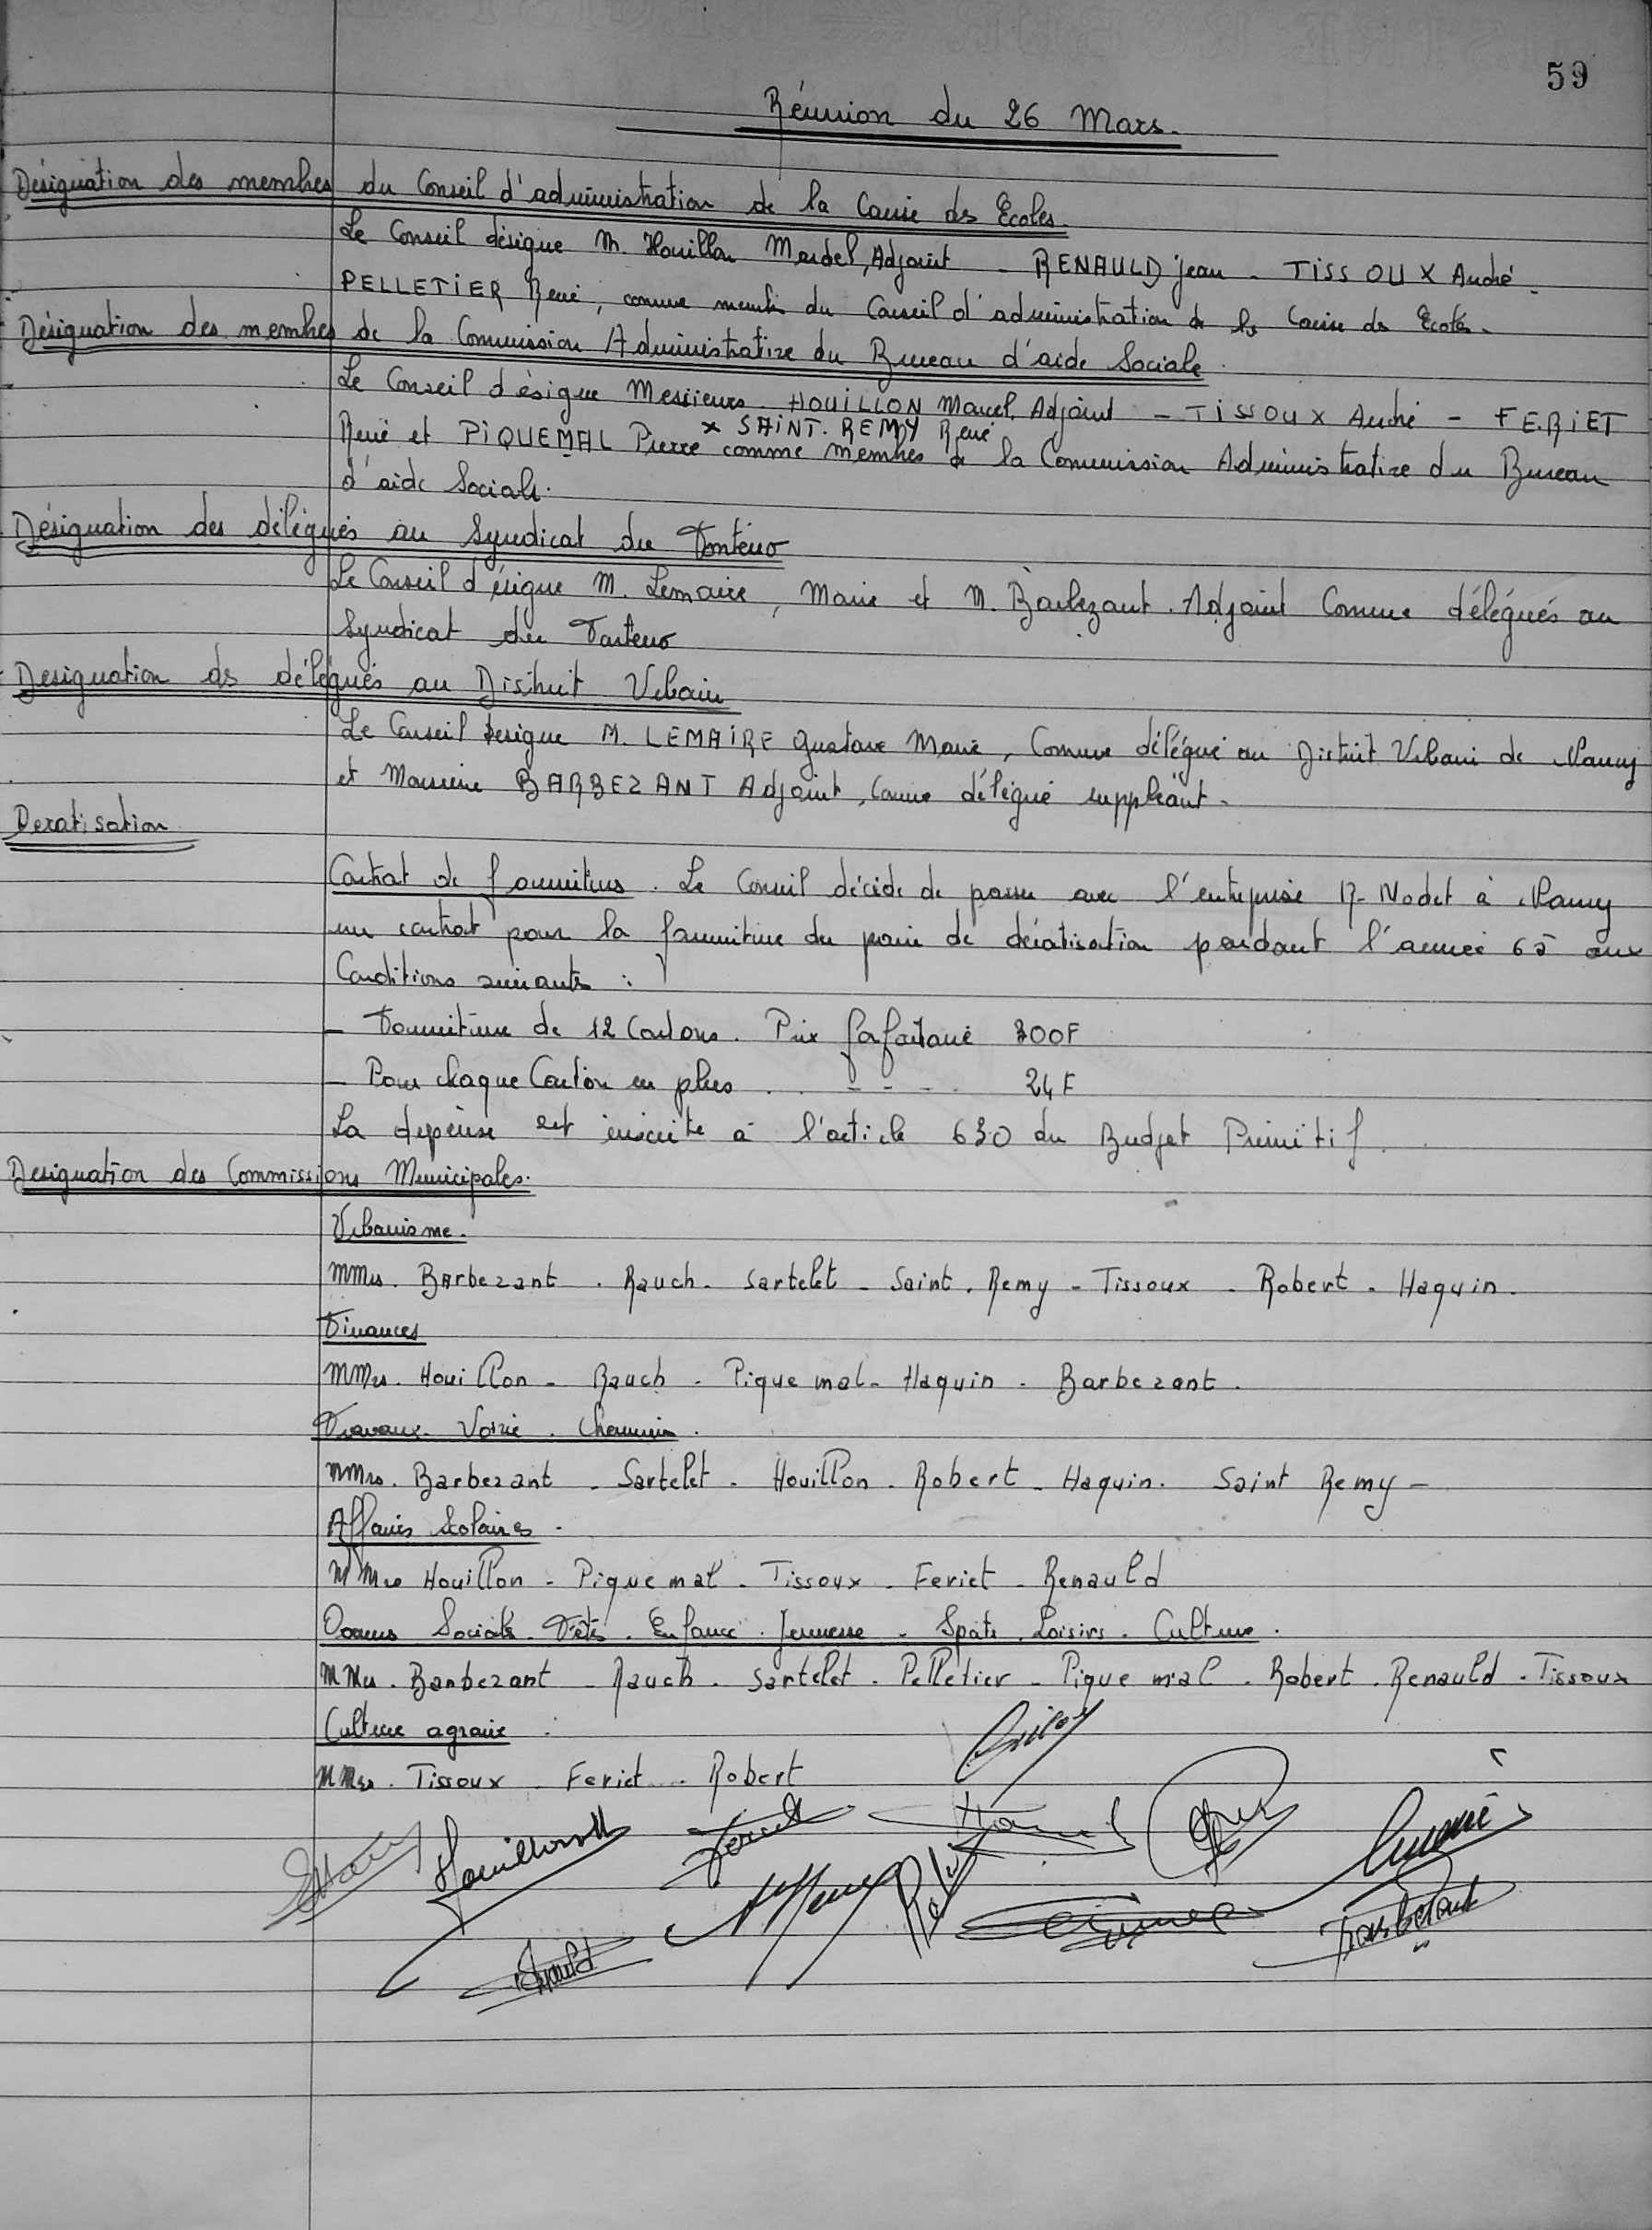 59
Réunion du 26 Mars.
Désignation des membres du Conseil d'administration de la Caisse des Ecoles.
Le Conseil désigne M. Houillon Marcel, Adjoint - RENAULD Jean - TISSOUX André -
PELLETIER René, comme membres du Conseil d'administration de la Caisse des Ecoles.
Désignation des membres de la Commission Administrative du Bureau d'aide Sociale.
Le Conseil désigne Messieurs HOUILLON Marcel, Adjoint - TISSOUX André - FERIET
x SAINT-REMY René
René et PIQUEMAL Pierre comme membres de la Commission Administrative du Bureau
d'aide Sociale.
Désignation des délégués au Syndicat du
Le Conseil désigne M. Lemaire, Maire et M. Barbezant. Adjoint Comme délégués au
Syndicat du
Designation des délégués au District Urbain
Le Conseil designe M. LEMAIRE Gustave Maire, Comme délégué au District Urbain de Nancy
et Monsieur BARBEZANT Adjoint, Comme délégué suppléant.
Deratisation
Contrat de fournitures. Le Conseil décide de passer avec l'entreprise Nodet à Nancy
un contrat pour la fourniture du pain de dératisation pendant l'année 65 aux
Conditions suivantes :
- Fourniture de 12 Cartons. Prix forfaitaire 300F
- Pour chaque Carton en plus . . - - - . 24 F
La dépense est inscrite à l'article 630 du Budget Primitif.
Designation des Commissions Municipales.
Urbanisme.
MMrs. Barbezant . Rauch - Sartelet - Saint. Remy - Tissoux - Robert - Haquin.
Finances
MMrs. Houillon - Rauch - Piquemal - Haquin - Barbezant.
Travaux. Voirie. Chemins.
MMrs. Barbezant - Sartelet - Houillon - Robert - Haquin. Saint Remy -
Affaires Scolaires -
MMrs Houillon - Piquemal - Tissoux - Feriet - Renauld
Oeuvres Sociales. Fêtes. Enfance. Jeunesse - Sports. Loisirs. Culture.
MMrs. Barbezant - Rauch. Sartelet - Pelletier - Piquemal - Robert. Renauld - Tissoux
Culture agraire :
MMrs. Tissoux - Feriet - Robert